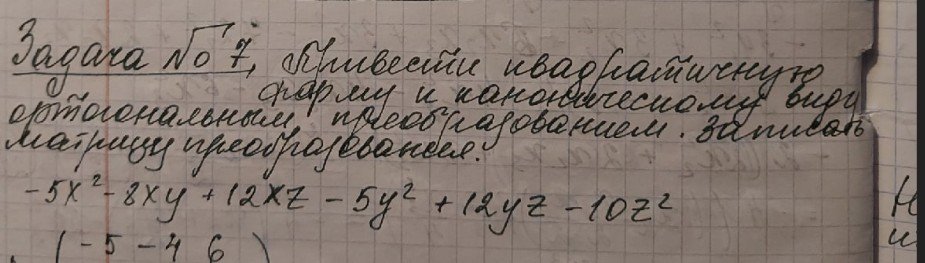 Задача № 7. Привести квадратичную
форму к каноническому виду
ортогональным преобразованием. Записать
матрицу преобразования.
-5x² - 8xy + 12xz - 5y² + 12yz - 10z²
( -5 -4 6 )